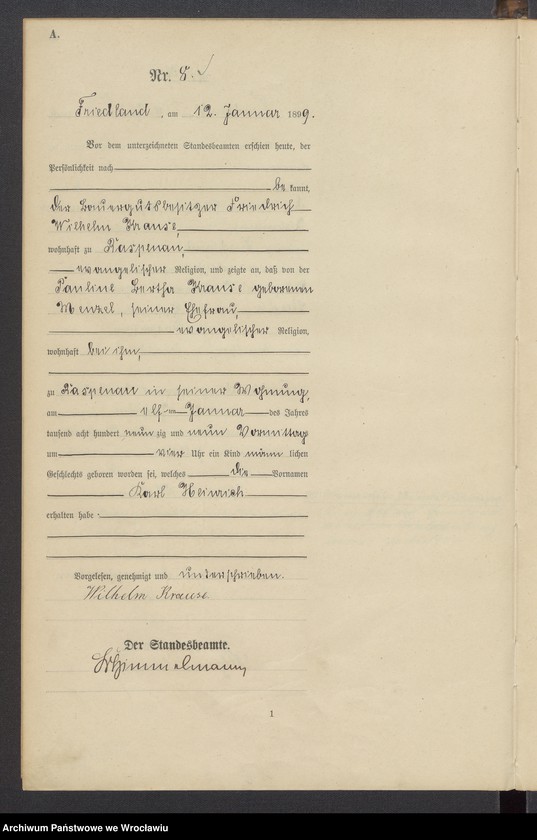 A.
Nr. 8.
Friedland, am 12. Januar 1899.
Vor dem unterzeichneten Standesbeamten erschien heute, der
Persönlichkeit nach
be kannt,
der Bauergutsbesitzer Friedrich
Wilhelm Krause,
wohnhaft zu Raspenau,
evangelischer Religion, und zeigte an, daß von der
Pauline Bertha Krause geborenen
Menzel, seiner Ehefrau,
evangelischer Religion,
wohnhaft bei ihm,
zu Raspenau in seiner Wohnung,
am elf ten Januar des Jahres
tausend acht hundert neun zig und neun Vormittags
um vier Uhr ein Kind männ lichen
Geschlechts geboren worden sei, welches die Vornamen
Karl Heinrich
erhalten habe.
Vorgelesen, genehmigt und unterschrieben.
Wilhelm Krause.
Der Standesbeamte.
1
Archiwum Państwowe we Wrocławiu